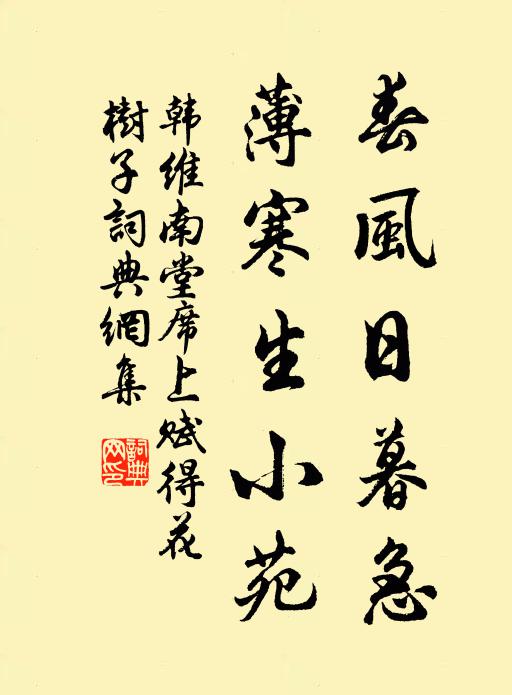 春風日暮急
薄寒生小苑
韩維南堂席上赋得花
樹子詞典網集
詞典網印